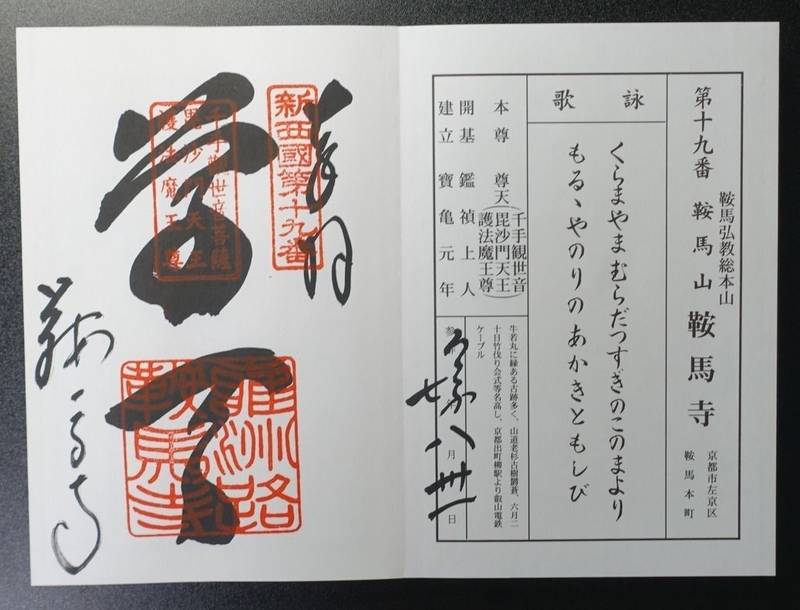 第十九番 鞍馬山 鞍馬寺
鞍馬弘教総本山
京都市左京区
鞍馬本町
詠歌
くらまやまむらだつすぎのこのまより
もるゝやのりのあかきともしび
本尊 尊天(千手観世音
毘沙門天王)
護法魔王尊
開基 鑑禎上人
建立 寶亀元年
牛若丸に縁ある古跡多く、山道老杉古樹欝蒼、六月二
十日竹伐り会式等名高し、京都出町柳駅より叡山電鉄
ケーブル
参
七 八月卅一日
奉拝
新西國第十九番
千手觀世音菩薩
毘沙門天王
護法魔王尊
尊天
雍州路
鞍馬寺
鞍馬寺